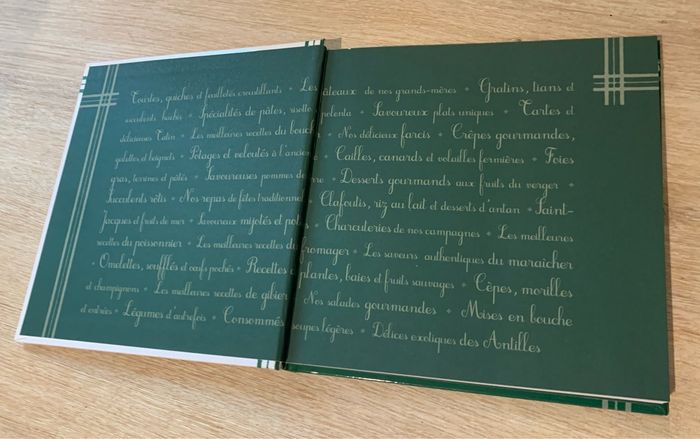 Tourtes, quiches et feuilletés croustillants • Les gâteaux de nos grands-mères • Gratins, tians et
succulents hachis • Spécialités de pâtes, risotto polenta • Savoureux plats uniques • Tartes et
délicieuses Tatin • Les meilleures recettes du bouch • Nos délicieux farcis • Crêpes gourmandes,
galettes et beignets • Potages et veloutés à l'ancienne • Cailles, canards et volailles fermières • Foies
gras, terrines et pâtés • Savoureuses pommes de rre • Desserts gourmands aux fruits du verger •
Succulents rôtis • Nos repas de fêtes traditionnel • Clafoutis, riz au lait et desserts d'antan • Saint-
Jacques et fruits de mer • Savoureux mijotés et pot • Charcuteries de nos campagnes • Les meilleures
recettes du poissonnier • Les meilleures recettes du fromager • Les saveurs authentiques du maraîcher
• Omelettes, soufflés et oeufs pochés • Recettes plantes, baies et fruits sauvages • Cèpes, morilles
et champignons • Les meilleures recettes de gibier • Nos salades gourmandes • Mises en bouche
et entrées • Légumes d'autrefois • Consommés soupes légères • Délices exotiques des Antilles